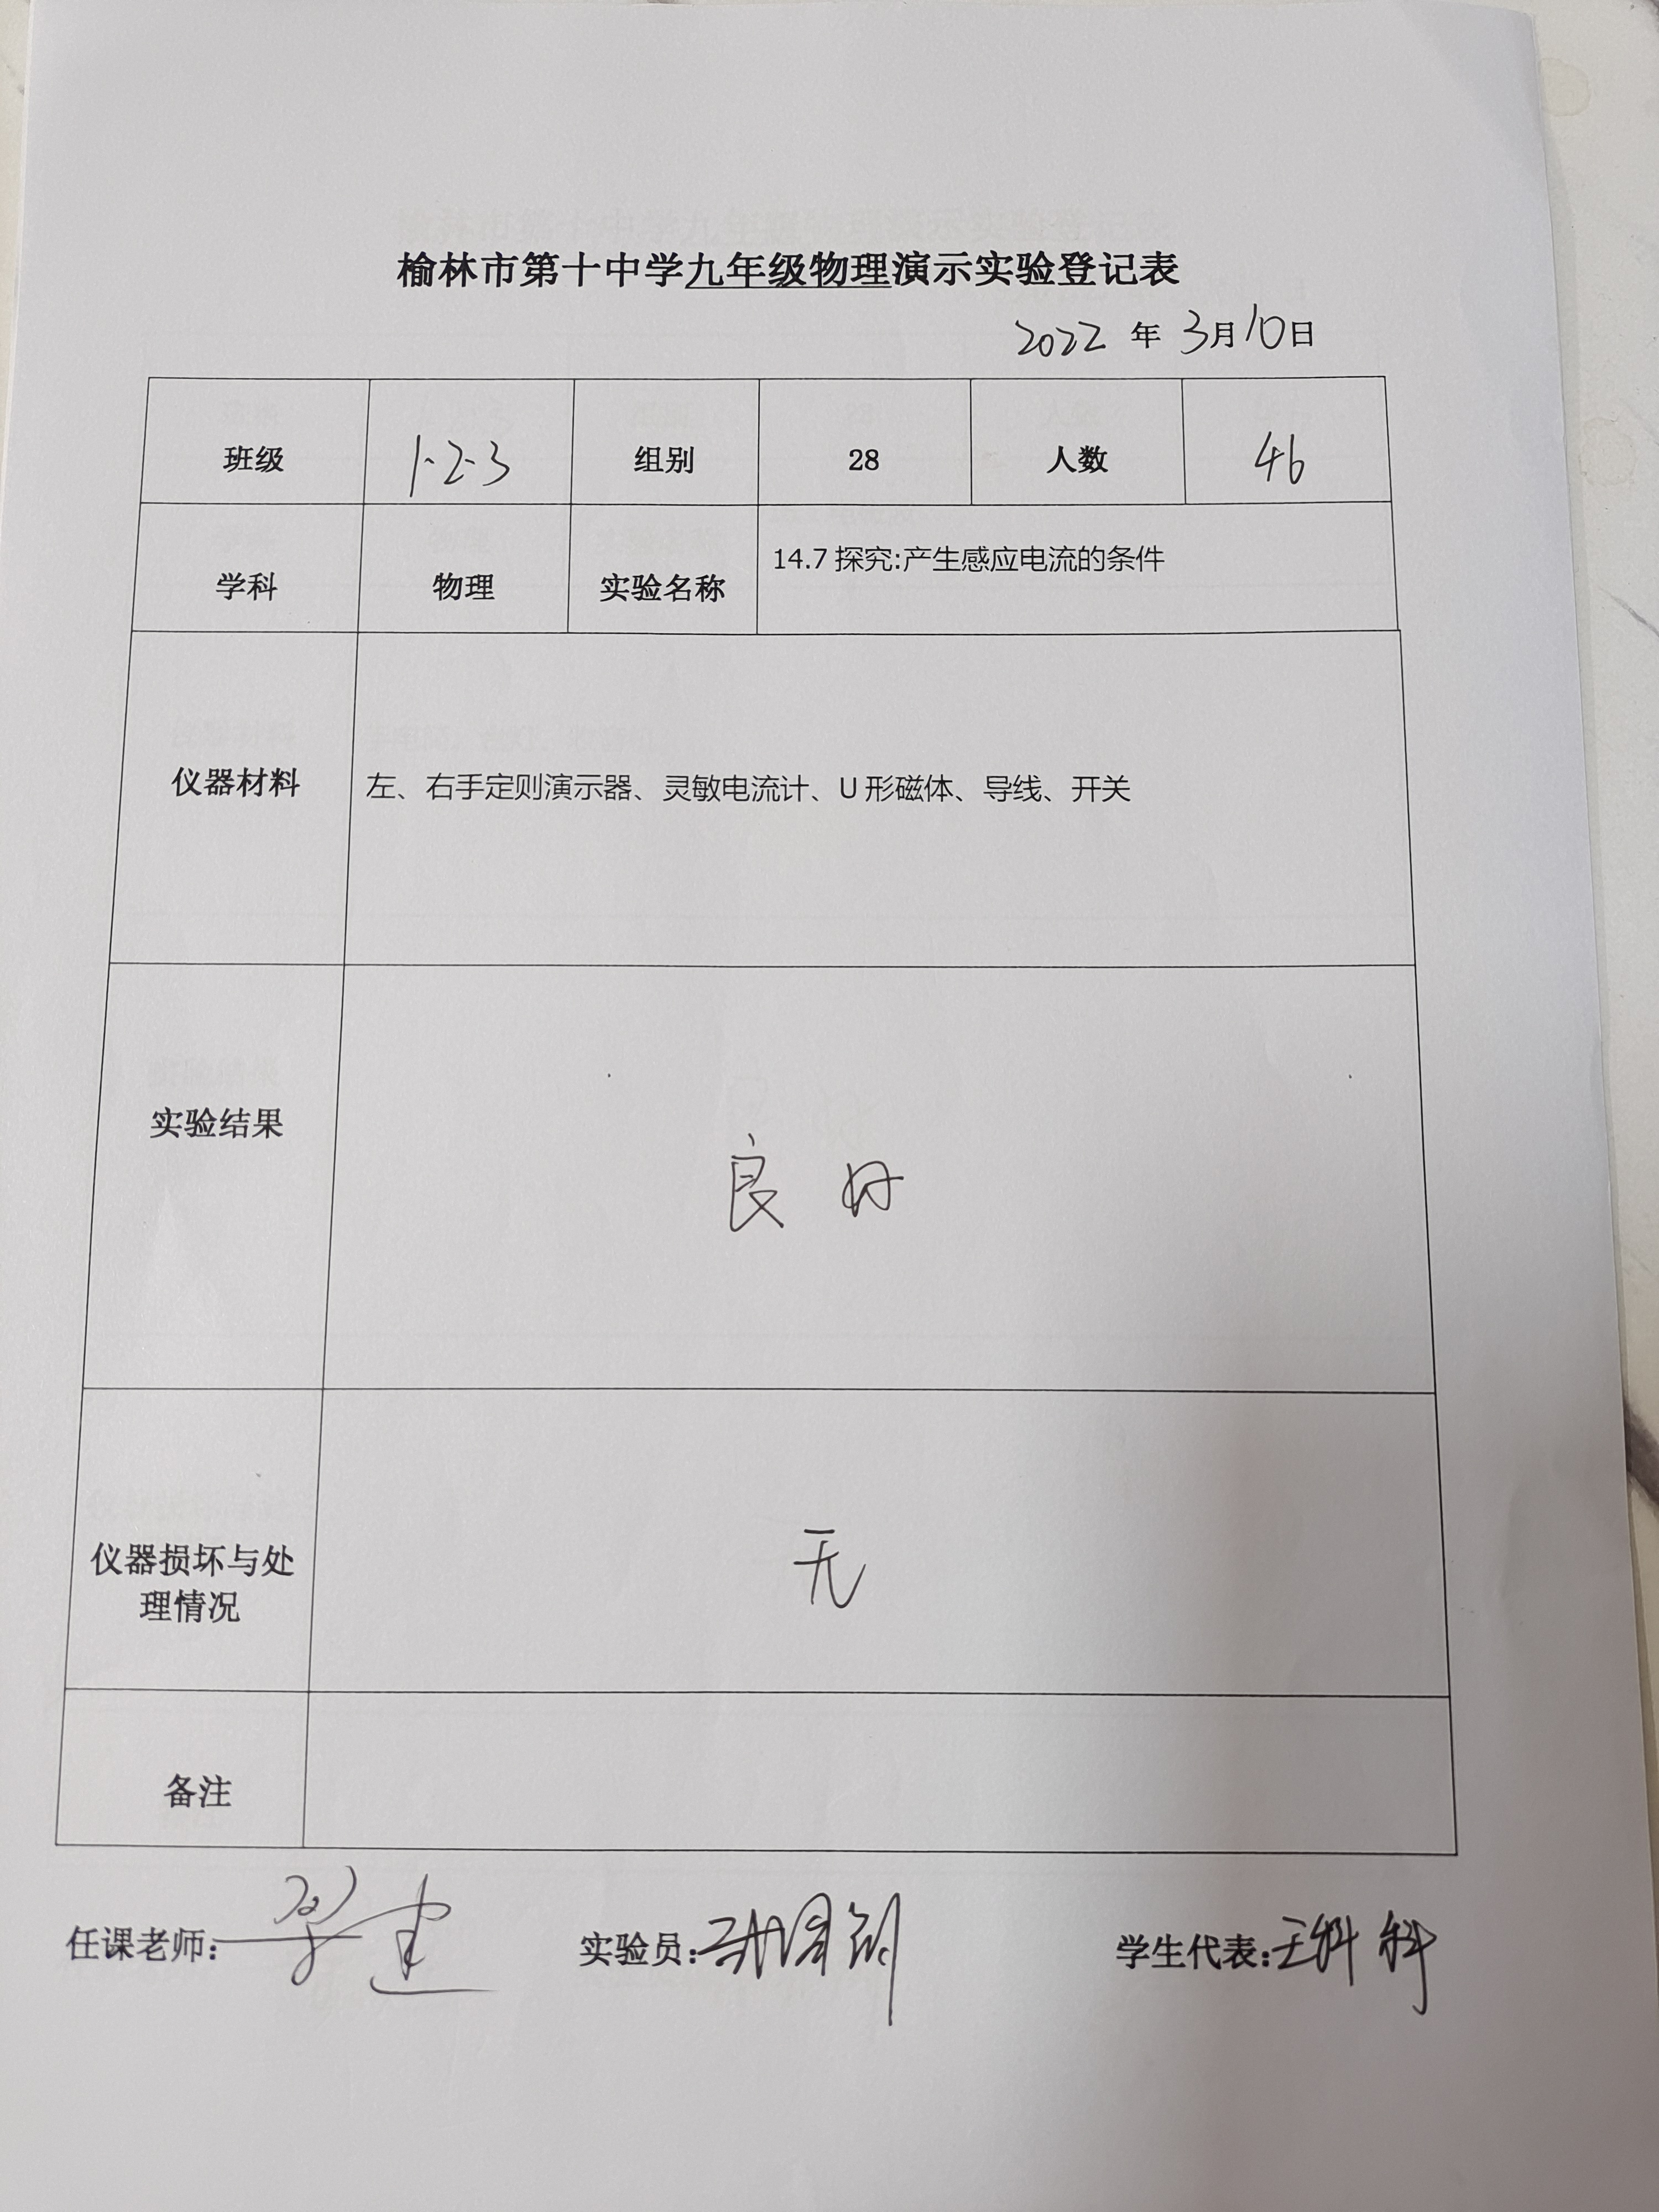 榆林市第十中学九年级物理演示实验登记表
2022 年 3月10日
班级 1·2·3 组别 28 人数 46
学科 物理 实验名称 14.7 探究:产生感应电流的条件
仪器材料 左、右手定则演示器、灵敏电流计、U 形磁体、导线、开关
实验结果 良好
仪器损坏与处
理情况 无
备注
任课老师: 实验员: 学生代表: